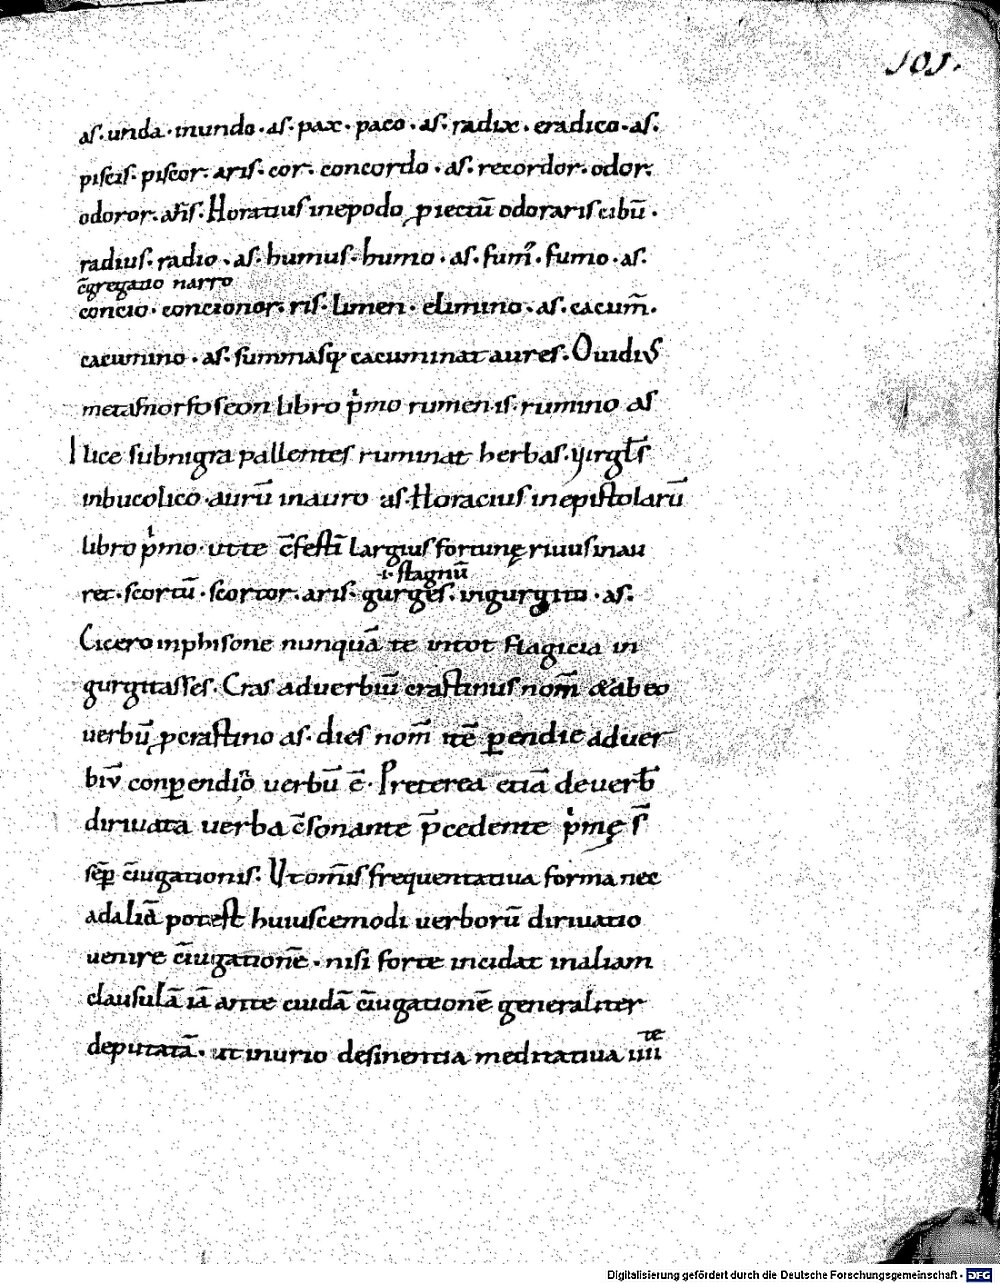 101.
as. unda. inundo. as. pax. paco. as. radix. eradico. as.
piscis. piscor. aris. cor. concordo. as. recordor. odor.
odoror. aris. Horatius inepodo piectū odoraris cibū.
radius. radio. as. humus. humo. as. fum̄. fumo. as.
c̄gregatio narro
concio. concionor. ris. limen. elimino. as. cacum̄.
cacumino. as. summasq; cacuminat aures. Ouidius
metamorfoseon libro p̍mo rumen. is. rumino as
Ilice subnigra pallentes ruminat herbas. uirgłs
inbucolico. aurū inauro as. Horacius inepistolarū
libro p̍mo. ut te c̄festī largius fortunę riuus inau
ret. scortū. scortor. aris. gurges. ingurgito. as.
.i. stagnū
Cicero inphisone nunquā te intot flagicia in
gurgitasses. Cras aduerbiū crastinus nom̄ & ab eo
uerbū pcrastino as. dies nom̄ itē pendie aduer
biū conpendiō uerbū ē. Preterea etiā deuerb̄
diriuata uerba c̄sonante p̄cedente p̍mę s̄
sēp c̄iugationis. Ut om̄is frequentatiua forma nec
adaliā potest huiuscemodi uerborū diriuatio
uenire c̄iugationē. nisi forte incidat inaliam
clausulā iā ante cuidā c̄iugationē generaliter
deputatā. ut inurio desinentia meditatiua iiii te
Digitalisierung gefördert durch die Deutsche Forschungsgemeinschaft - DFG